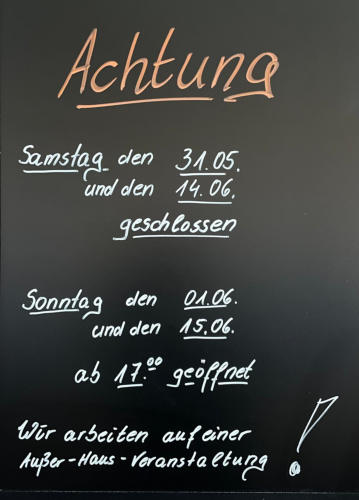 Achtung
Samstag den 31.05.
und den 14.06.
geschlossen
Sonntag den 01.06.
und den 15.06.
ab 17.⁰⁰ geöffnet
Wir arbeiten auf einer
Außer-Haus-Veranstaltung !